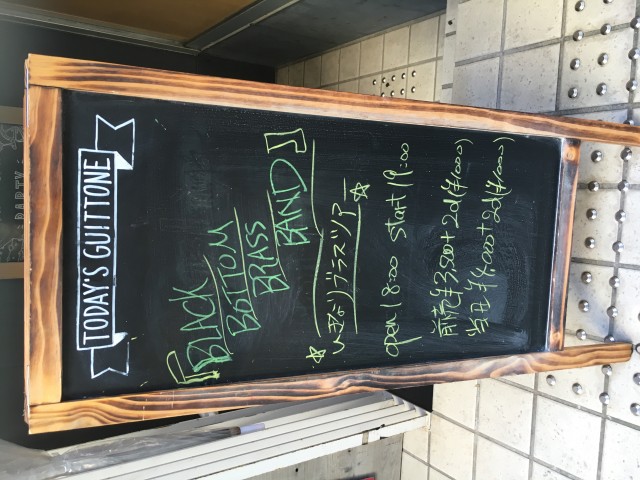 TODAY'S GUITTONE
『BLACK
BOTTOM
BRASS
BAND』
☆いきなりブラスツアー☆
open 18:00 start 19:00
前売¥3,500+2d(¥1,000)
当日¥4,000+2d(¥1,000)
PARTY